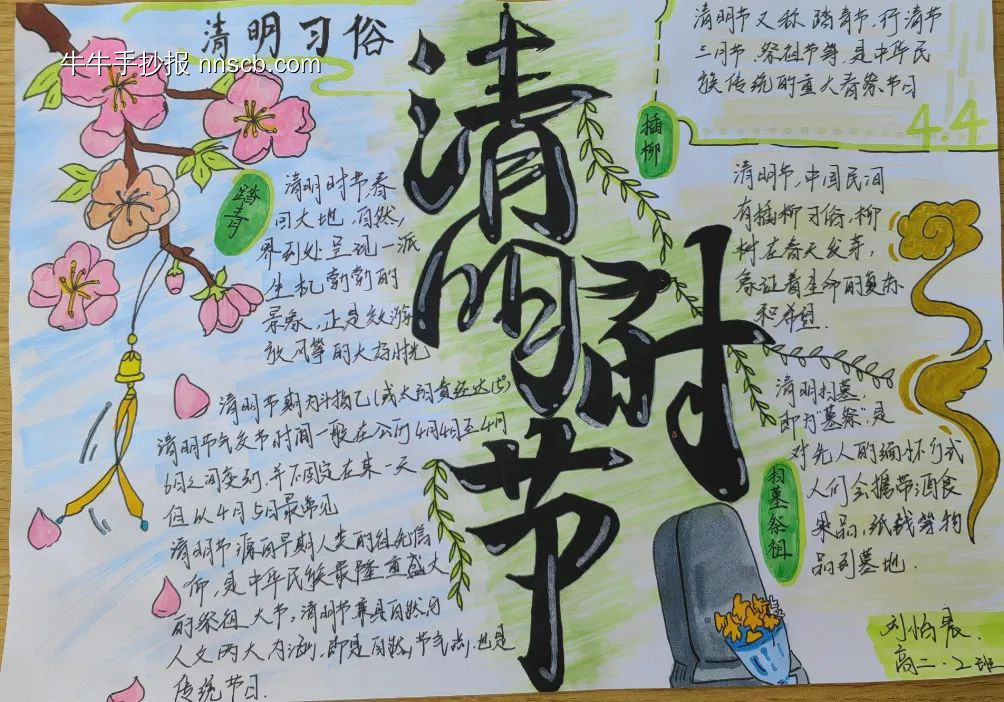 清明习俗
牛牛手抄报 nnscb.com
清明时节
清明节又称踏青节、行清节
三月节、祭祖节等,是中华民
族传统的重大春祭节日
4.4
踏青
清明时节春
回大地,自然
界到处呈现一派
生机勃勃的
景象,正是郊游
放风筝的大好时光
插柳
清明节,中国民间
有插柳习俗,柳
树在春天发芽,
象征着生命的复苏
和希望.
清明节期为斗指乙(或太阳黄经达15°)
清明节气交节时间一般在公历4月4日至4月
6日之间变动,并不固定在某一天
但以4月5日最常见
清明节源自早期人类的祖先信
仰,是中华民族最隆重盛大
的祭祖大节,清明节兼具自然与
人文两大内涵,即是自然节气点,也是
传统节日.
扫墓祭祖
清明扫墓,
即为"墓祭",是
对先人的缅怀仪式
人们会携带酒食
果品,纸钱等物
品到墓地.
刘怡晨
高二·2班